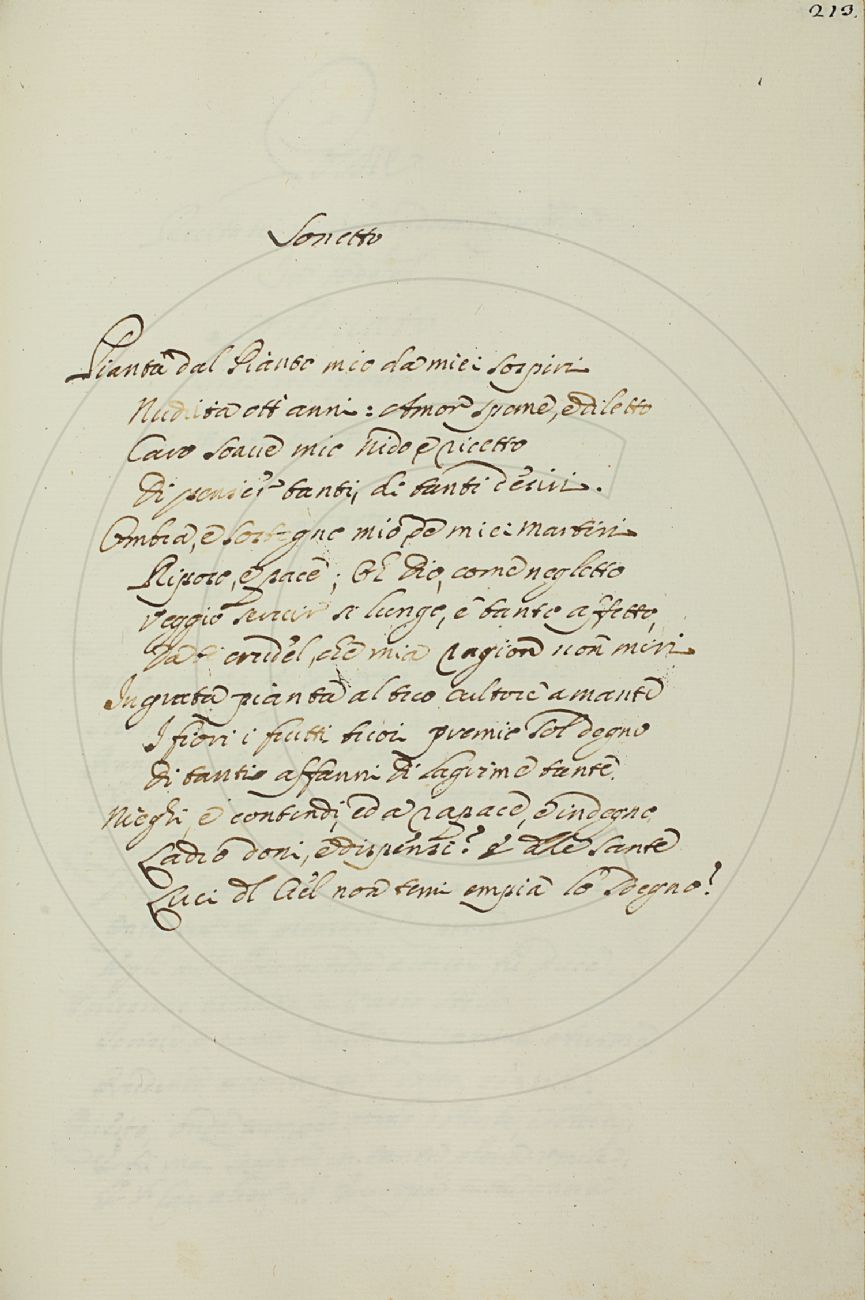 213.
Sonetto
Pianta dal Pianto mio da miei sospiri
Nudrita ott'anni: Amor speme, e diletto
Caro soave mio Nido e ricetto
Di pensier tanti, di tanti desiri.
Ombra, e sostegno mio, de miei martiri
Riposo, e pace; Oh Dio, come negletto
Veggio servir sì lungo, e tanto affetto,
crudel, che mia ragion non miri
Ingrata pianta al tuo cultore amante
I fiori i frutti tuoi premio sol degno
Di tanti affanni di lagrime tante.
Nieghi, e contendi, ed a rapace, e indegno
Ladro doni, e dispensi? e alle sante
Luci del Ciel non temi empia lo sdegno?